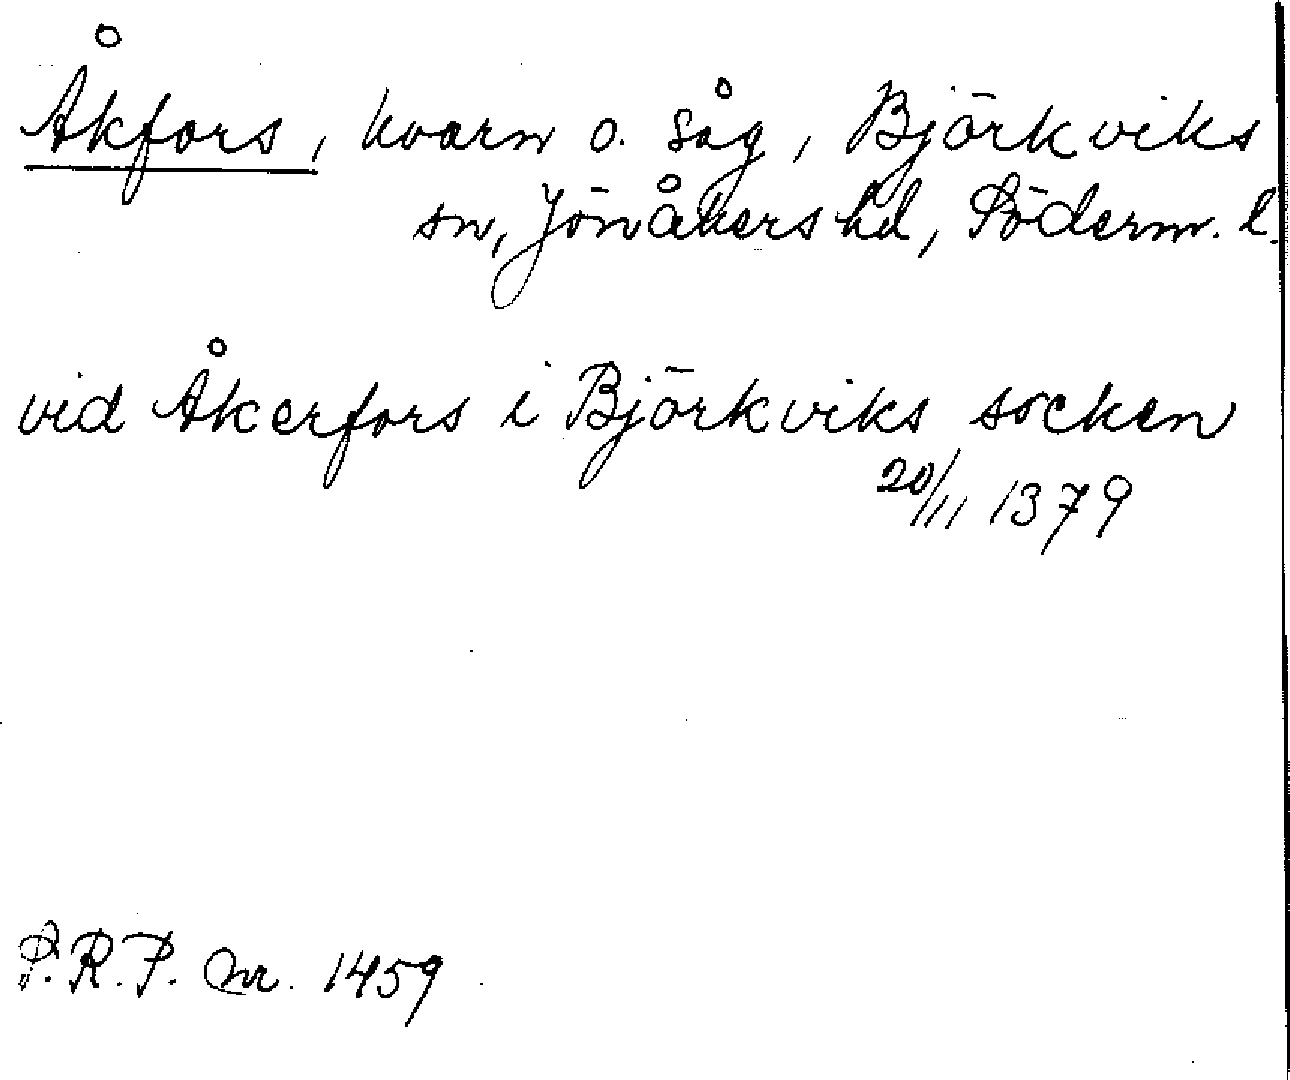 Åkfors, kvarn o. såg, Björkviks
sn, Jönåkers hd, Söderm. l.
vid Åkerfors i Björkviks socken
20/11 1379
P.R.P. nr. 1459